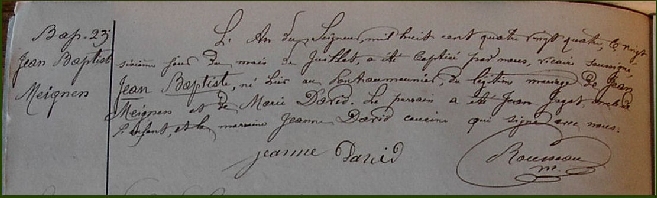 Bap. 23
Jean Baptist
Meignen
L'An du Seigneur mil huit cent quatre vingt quatre, le vingt
sixième jour du mois de Juillet, a été baptisé par nous, vicaire soussigné,
Jean Baptiste, né hier au du légitime mariage de Jean
Meignen et de Marie David. Le parrain a été Jean
l'enfant, et la marraine Jeanne David cousine qui signe avec nous.
Jeanne David
Rousseau